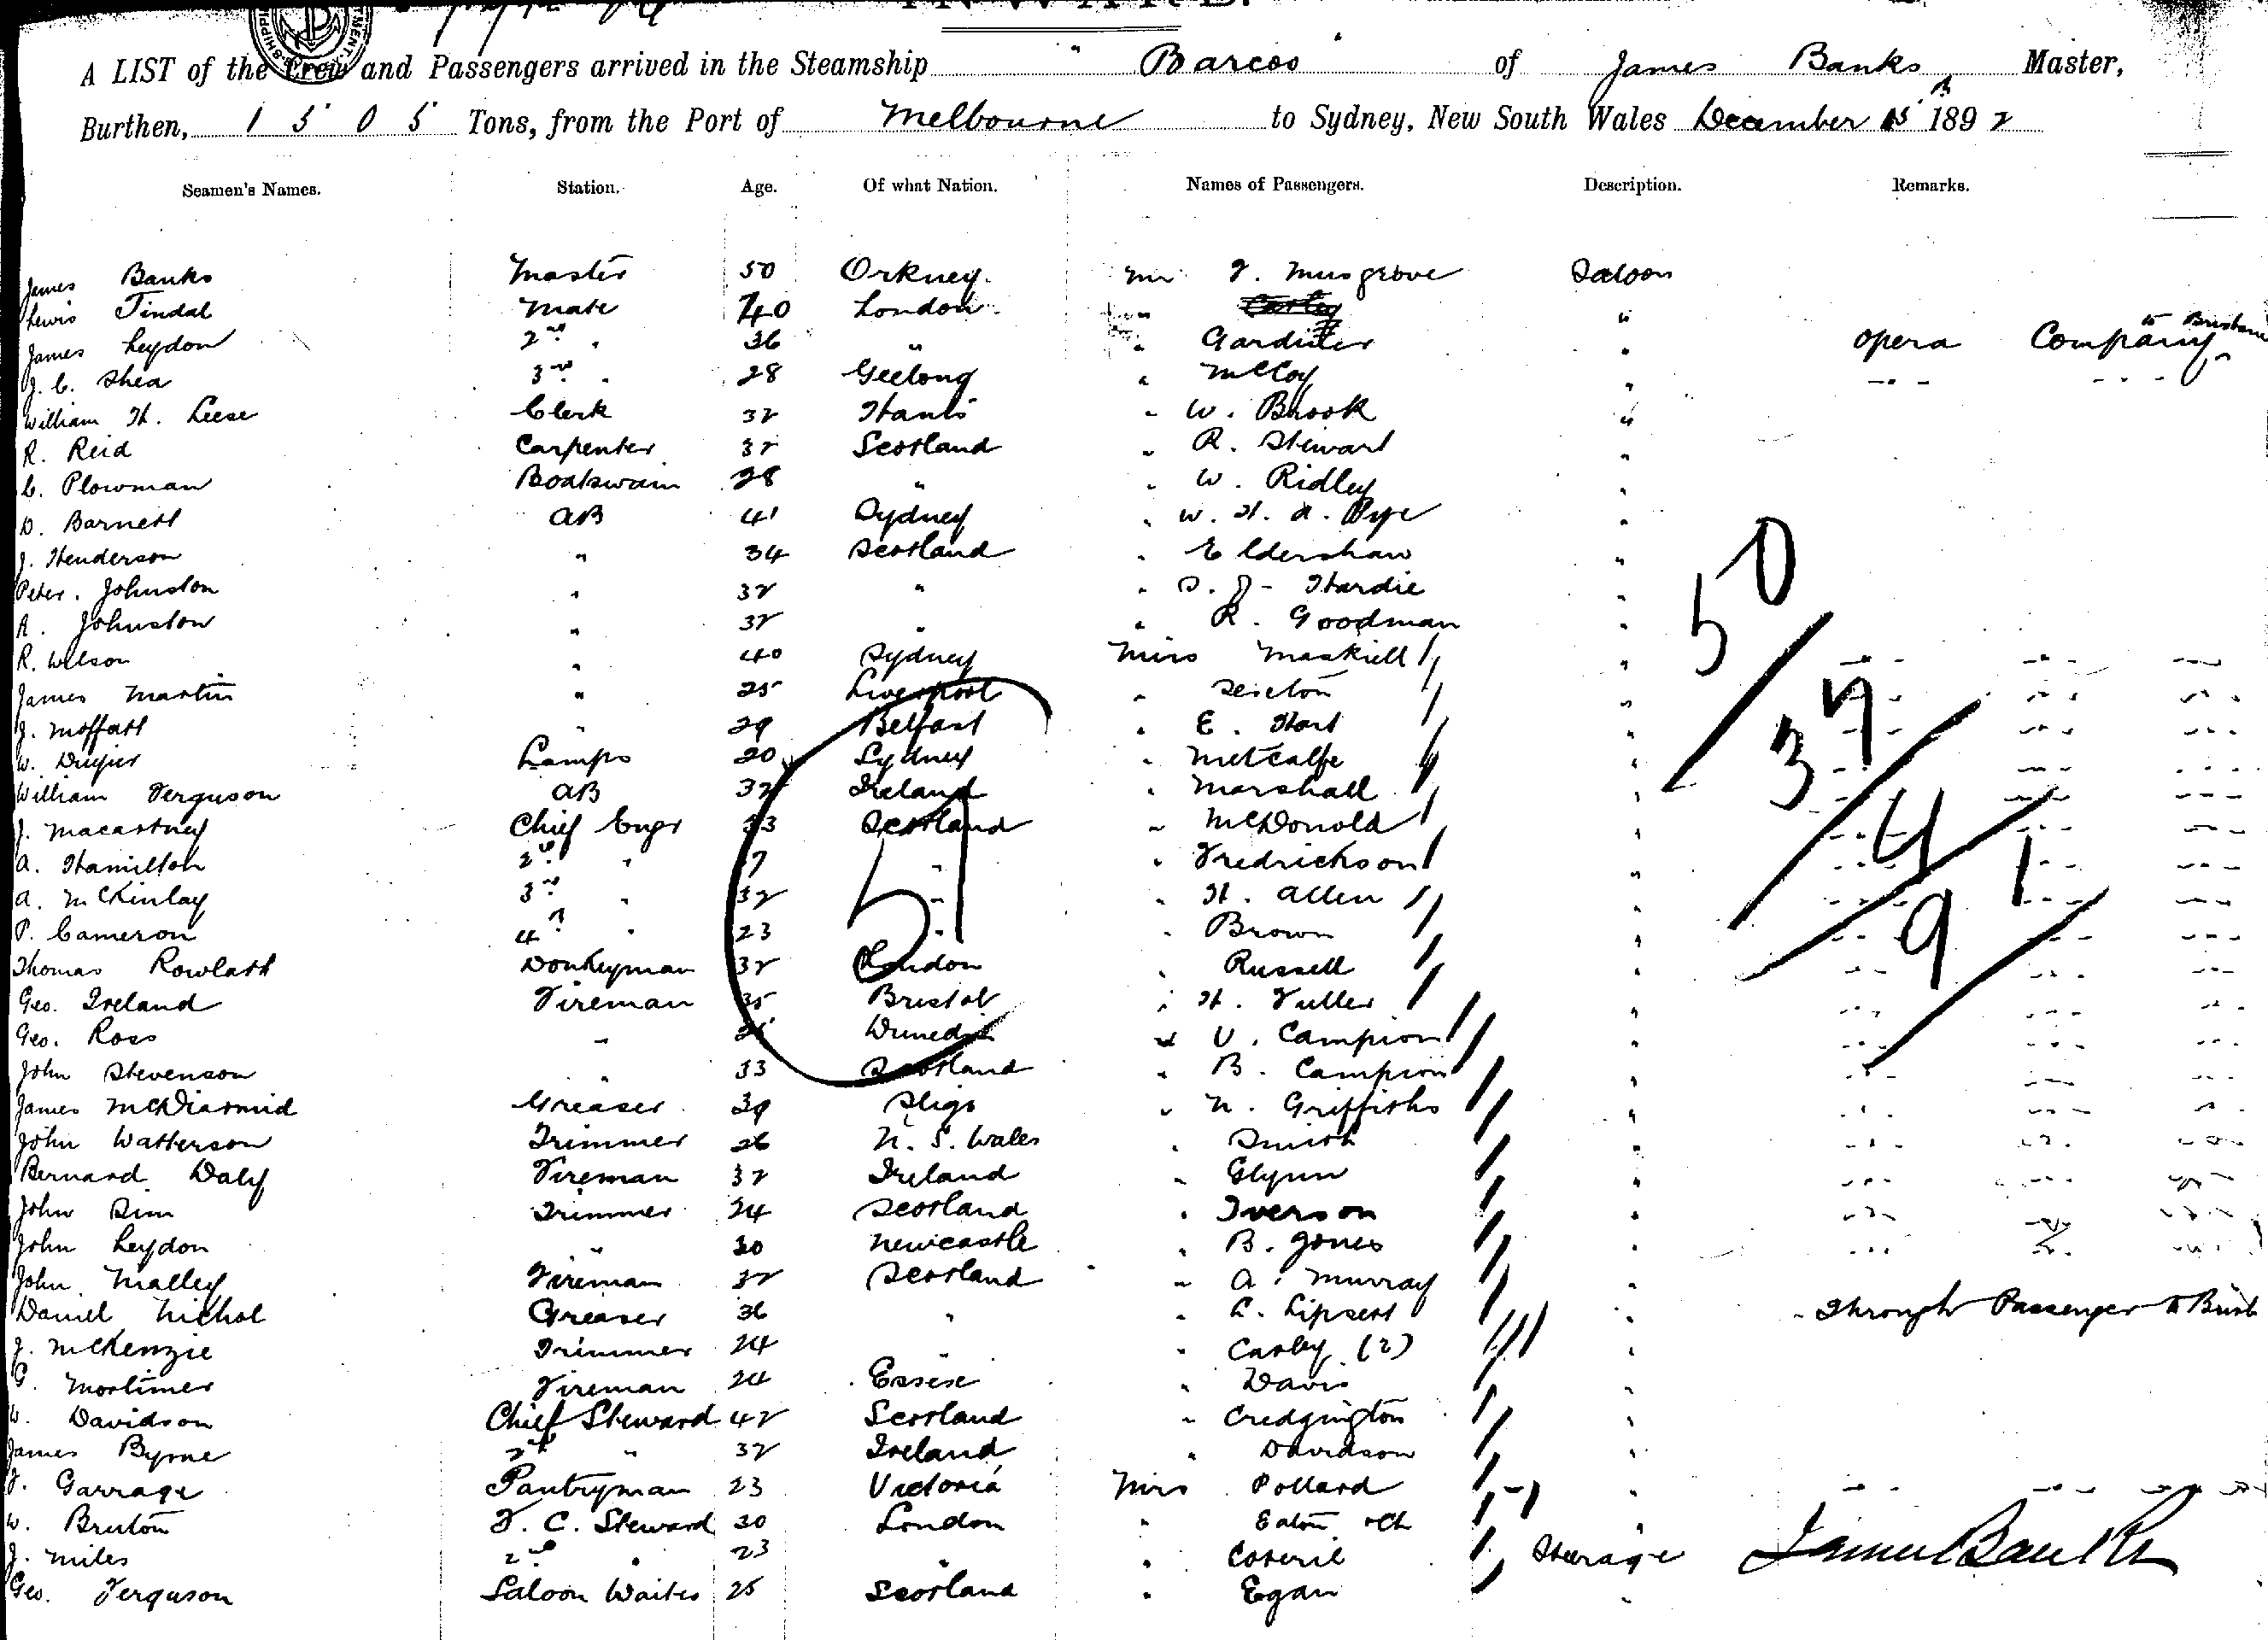 A LIST of the Crew and Passengers arrived in the Steamship "Barcoo" of James Banks Master,
Burthen, 1505 Tons, from the Port of Melbourne to Sydney, New South Wales December 15th 1892
Seamen's Names. Station. Age. Of what Nation. Names of Passengers. Description. Remarks.
James Banks Master 50 Orkney. Mr J. Musgrove Saloon
Lewis Tindal Mate 40 London " "
James Leydon 2nd " 36 " " Gardiner " Opera Company to Brisbane
J. C. Shea 3rd " 28 Geelong " McCoy "
William H. Leese Clerk 32 Hants " W. Brook "
R. Reid Carpenter 32 Scotland " R. Stewart "
C. Plowman Boatswain 28 " " W. Ridley "
D. Barnett AB 41 Sydney " W. H. A. Pye "
J. Henderson " 34 Scotland " Eldershaw "
Peter Johnston " 32 " " D. J. Hardie "
A. Johnston " 32 " " R. Goodman "
R. Wilson " 40 Sydney Miss Maskiell "
James Martin " 25 Liverpool " Seicton "
J. Moffatt " 29 Belfast " E. Hart "
W. Lamps 20 Sydney " Metcalfe "
William Ferguson AB 32 Ireland " Marshall "
J. Macartney Chief Engr 33 Scotland " McDonold "
A. Hamilton 2nd " " " Fredrickson "
A. McKinlay 3rd " 32 " " H. Allen "
P. Cameron 4th " 23 " " Brown "
Thomas Rowlatt Donkeyman 32 London " Russell "
Geo. Ireland Fireman 35 Bristol " H. Fuller "
Geo. Ross " Dunedin " V. Campion "
John Stevenson " 33 Scotland " B. Campion "
James McDiarmid Greaser 39 Sligo " N. Griffiths "
John Watterson Trimmer 26 N. S. Wales " Smith "
Bernard Daly Fireman 32 Ireland " Glynn "
John Sim Trimmer 24 Scotland " Iverson "
John Leydon " 30 Newcastle " B. Jones "
John Malley Fireman 32 Scotland " A. Murray "
Daniel Nichol Greaser 36 " " L. Lipsett " Through Passenger to Brisb
J. McKenzie Trimmer 24 " " Casley (2) "
G. Mortimer Fireman 24 Essex " Davis "
W. Davidson Chief Steward 42 Scotland " Credgington "
James Byrne 2nd " 32 Ireland " Davidson "
J. Garrage Pantryman 23 Victoria Mrs Pollard "
W. Bruton F. C. Steward 30 London " Eaton + Ch "
J. Miles 2nd " 23 " " Coterie Steerage James Banks
Geo. Ferguson Saloon Waiter 25 Scotland " Egan "
50
37
4
91
51